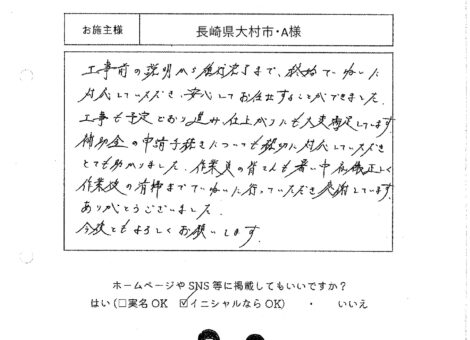 お施主様
長崎県大村市・A様
工事前の説明から施工完了まで、終始ていねいに
対応していただき、安心してお任せすることができました。
工事も予定どおり進み仕上がりにも大変満足しています。
補助金の申請手続きについても親切に対応していただき
とても助かりました。作業員の皆さんも暑い中、礼儀正しく
作業後の清掃までていねいに行っていただき感謝しています。
ありがとうございました。
今後ともよろしくお願いします。
ホームページや SNS 等に掲載してもいいですか？
はい (□実名 OK ☑イニシャルなら OK) ・ いいえ